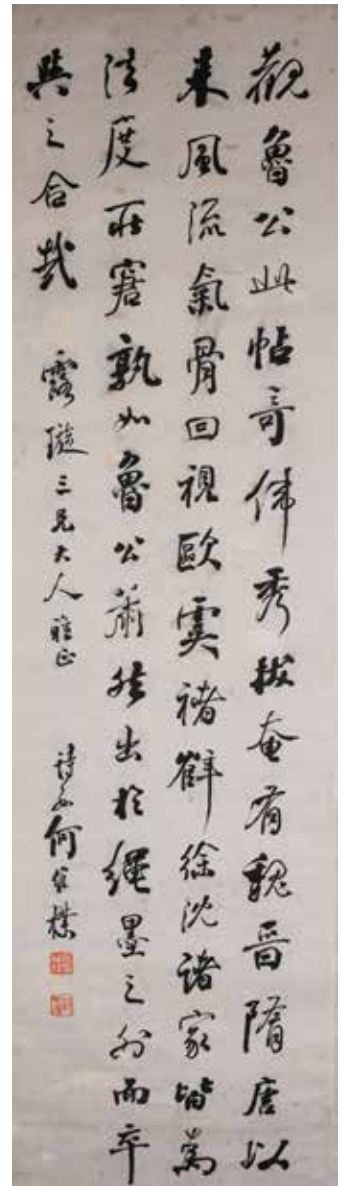 觀魯公此帖奇偉秀拔奄有魏晉隋唐以
來風流氣骨回視歐虞褚薛徐沈諸家皆為
法度所窘孰如魯公蕭然出於繩墨之外而卒
與之合哉 三兄大人雅正 詩孫何維樸